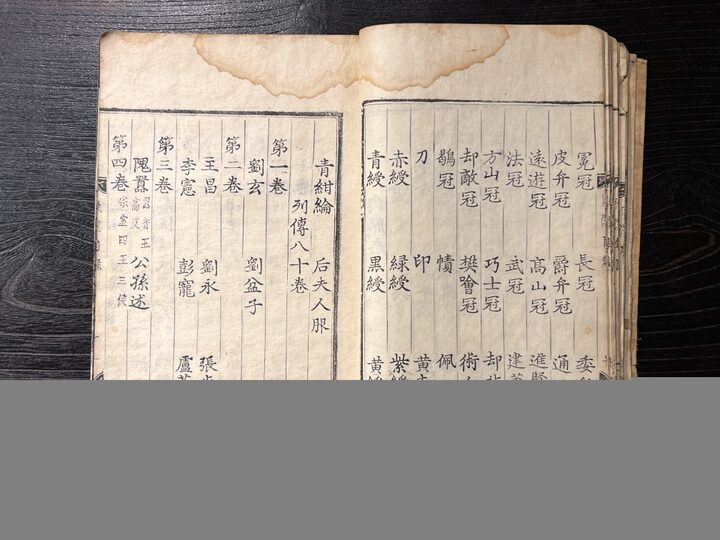 冕冠 長冠 委
皮弁冠 爵弁冠 通
遠遊冠 高山冠 進賢
法冠 武冠 建
方山冠 巧士冠 却
却敵冠 樊噲冠 術
鶡冠 幘 佩
刀 印 黄
赤綬 綠綬 紫綬
青綬 黑綬 黄
青紺綸 后夫人服
列傳八十卷
第一卷
劉玄 劉盆子
第二卷
王昌 劉永 張
李憲 彭寵 盧
第三卷
隗囂 囂音五高反 公孫述
第四卷 宗室四王三侯